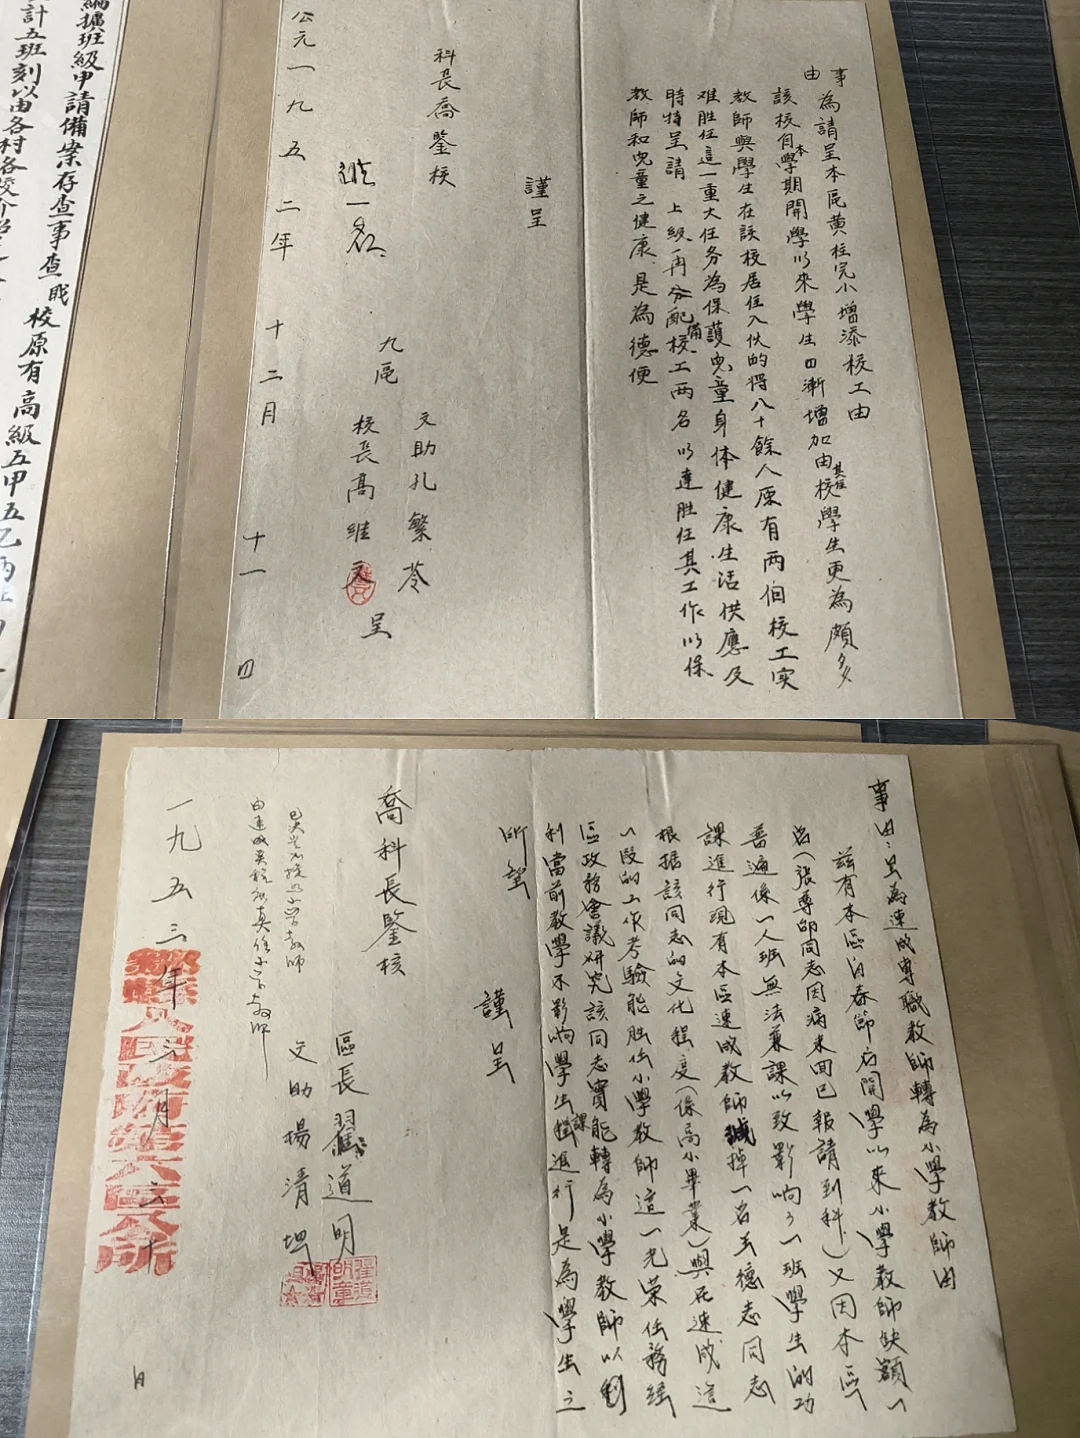 事由 為請呈本區黄柱完小增添校工由
該校自本學期開學以來學生日漸增加由其住校學生更為頗多
教師與學生在該校居住入伙的得八十餘人原有两個校工实
难胜任這一重大任务為保護児童身体健康生活供應及
時特呈請 上級再分配補校工两名以達胜任其工作以保
教師和児童之健康是為德便
謹呈
科長喬鑒核
九區 文助孔繁苓
校長高维 呈
一名
公元一九五二年十二月十一日
編擴班級申請備案存查事查 校原有高級五甲五乙
計五班刻以由各村各校介绍
事由：呈為速成專職教師轉為小學教師由
兹有本區自春節后開學以來小學教師缺額一
名(張尊邰同志因病未囬已報請到科)又因本區
普遍係一人班無法兼課以致影响了一班學生的功
課進行現有本區速成教師 掉一名 德志同志
根据該同志的文化程度(係高小畢業)與在速成這
一段的工作考驗能胜任小學教師這一光荣任務經
區政務會議研究該同志實能轉為小學教師以利
利當前教學不影响學生課 進行是為學生之
所望
謹呈
喬科長鑒核
區長翟道明
文助揚清
小学教師
由速成 小学教师
一九五三年 月 十 日
人民政府第六區公所
翟道明章